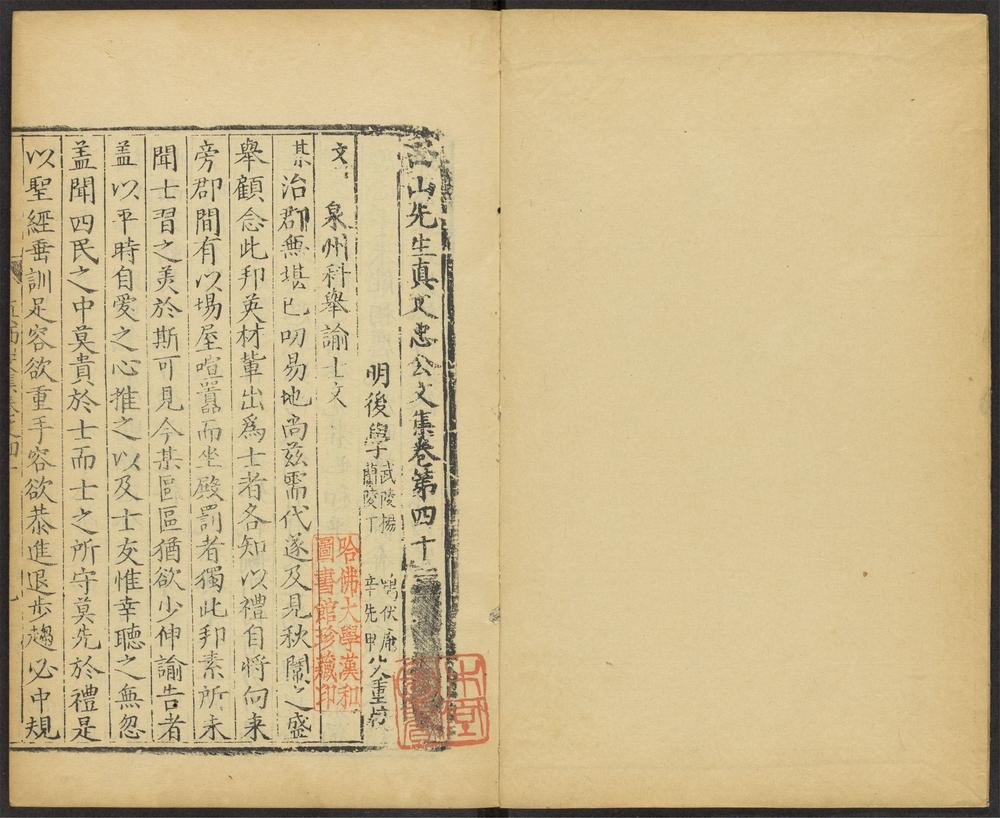 西山先生真文忠公文集卷第四十
明後學 武陵楊鶴伏庵 蘭陵丁辛先甲 父重校
文
泉州科舉諭士文
某治郡無堪已叨易地尚茲需代遂及見秋闈之盛
舉顧念此邦英材輩出爲士者各知以禮自將向來
旁郡間有以場屋喧囂而坐殿罰者獨此邦素所未
聞士習之美於斯可見今某區區猶欲少伸諭告者
盖以平時自愛之心推之以及士友惟幸聽之無忽
盖聞四民之中莫貴於士而士之所守莫先於禮是
以聖經垂訓足容欲重手容欲恭進退步趨必中規
哈佛大學漢和
圖書館珍藏印